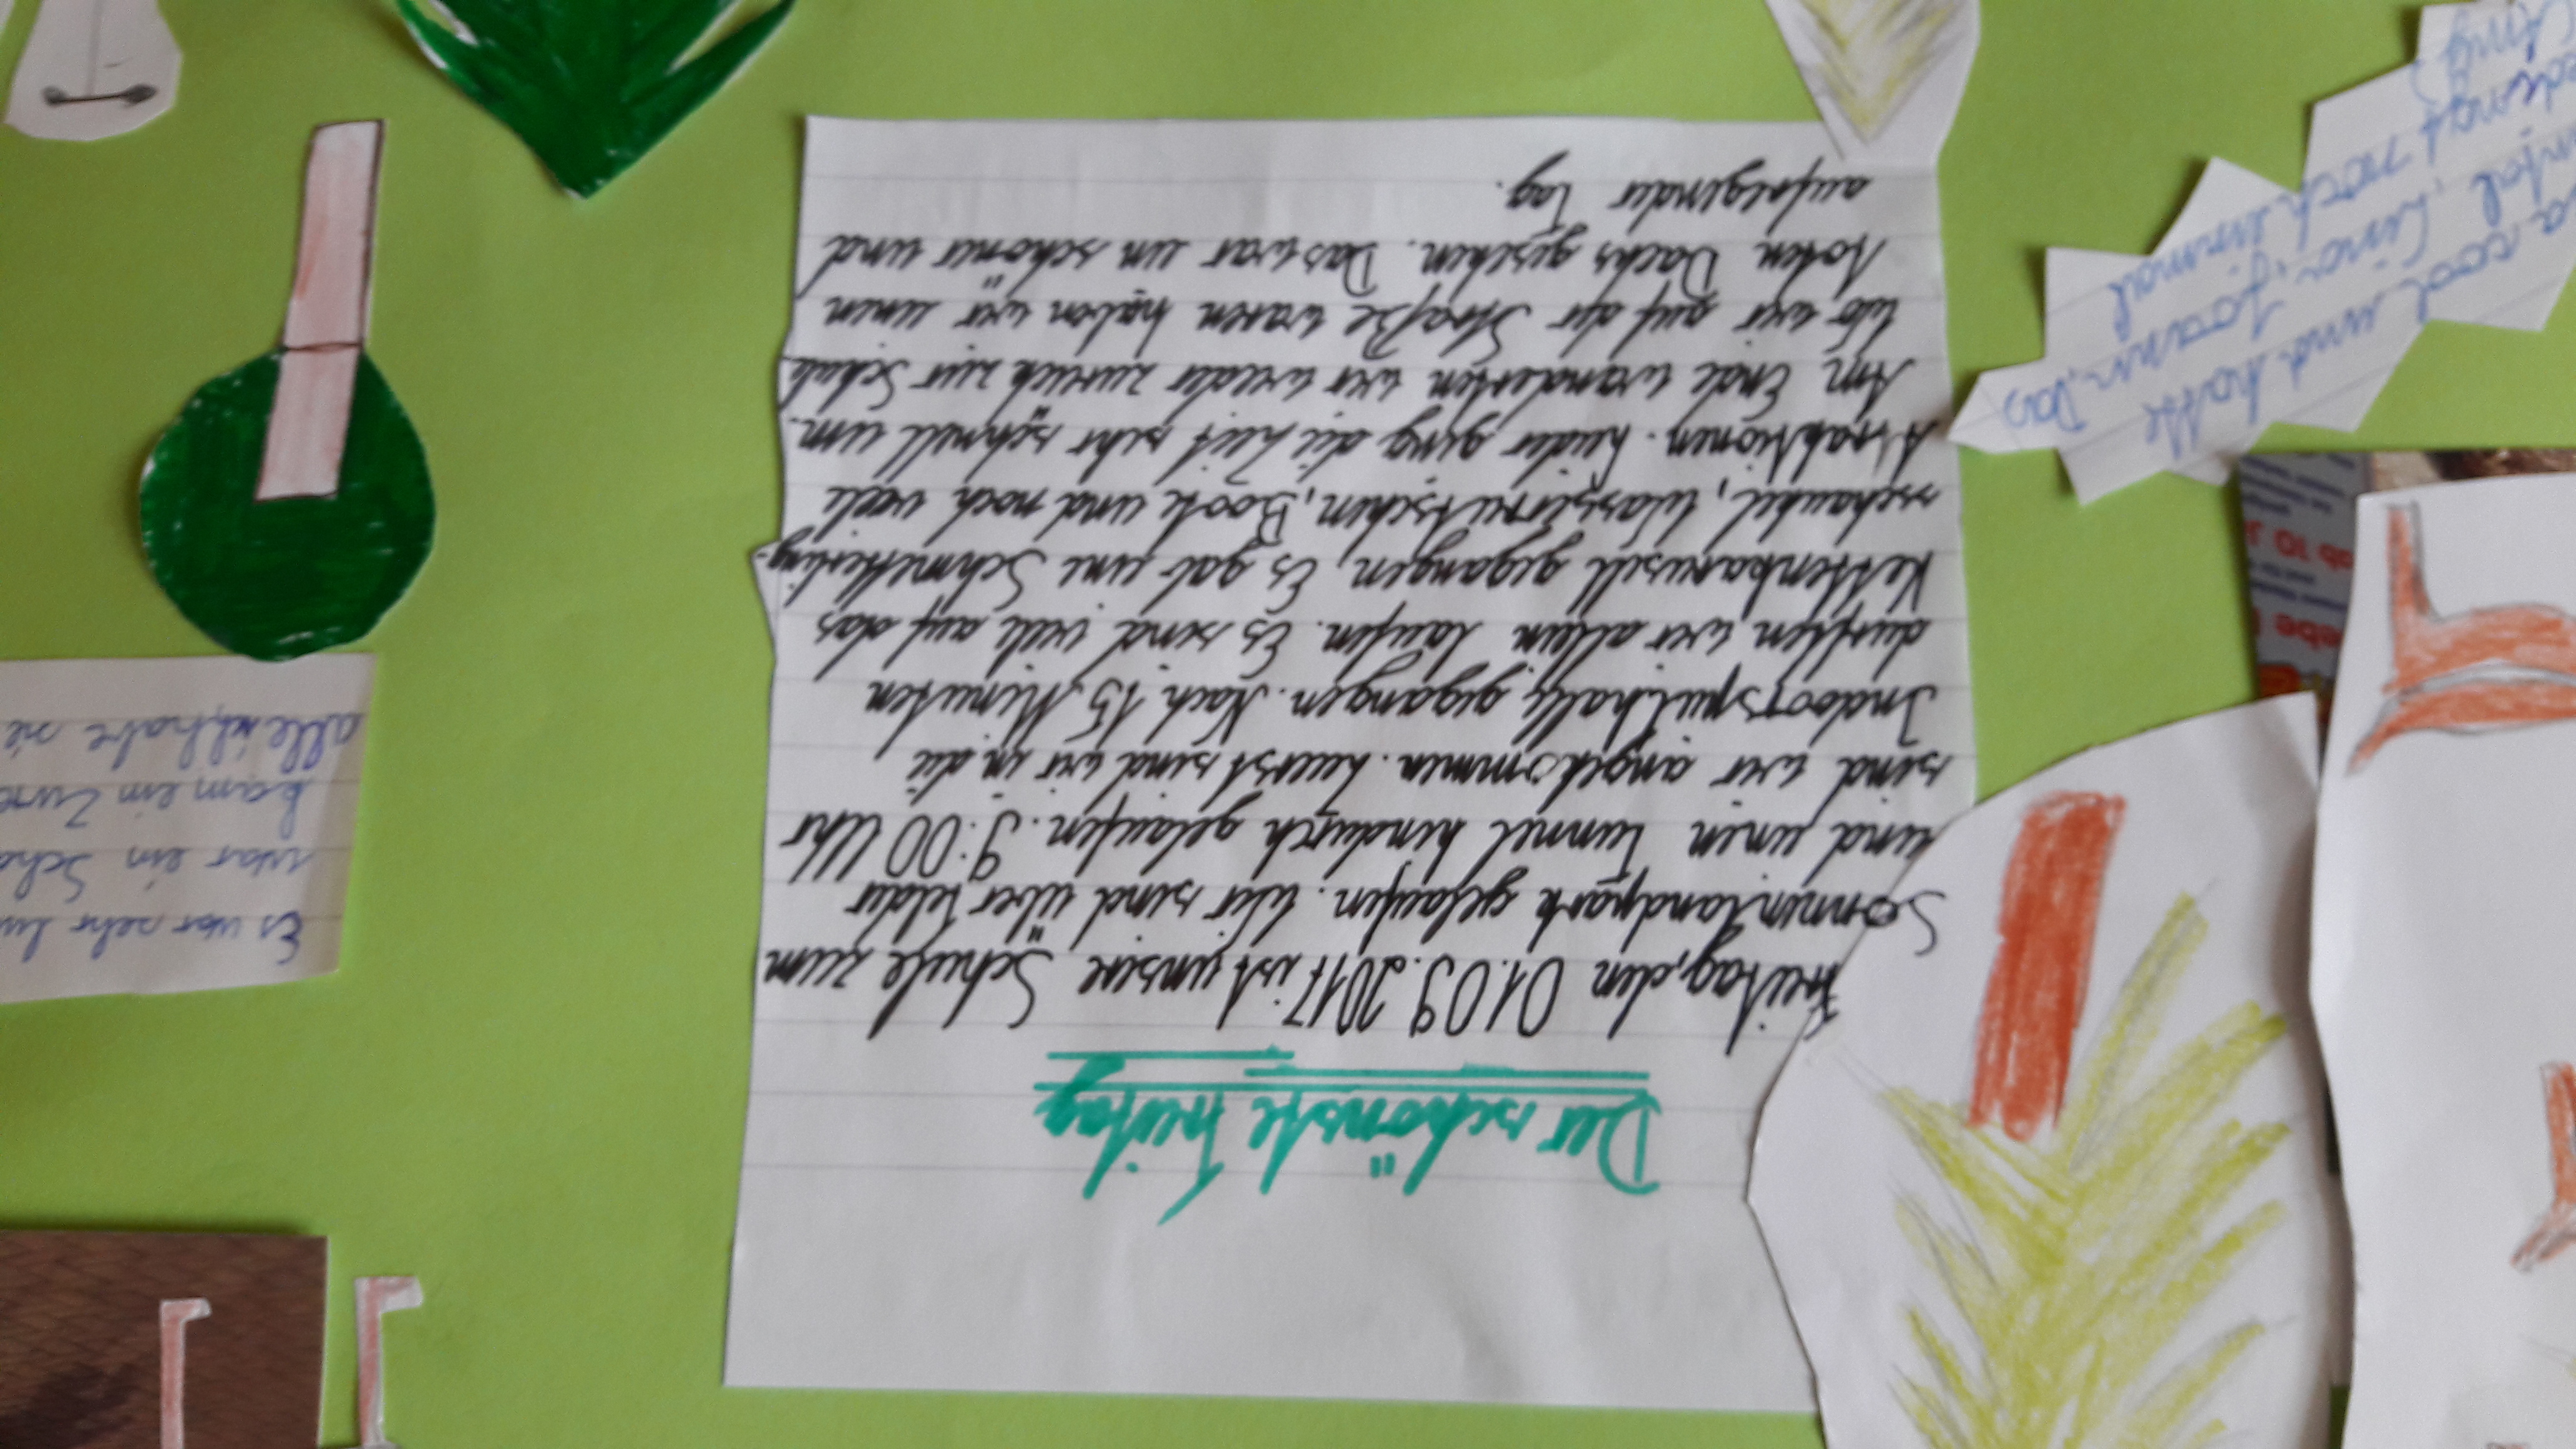 Der schönste Freitag
Freitag, den 01.09.2017 ist unsere Schule zum
Sonnenlandpark gelaufen. Wir sind über Felder
und einen Tunnel hindurch gelaufen. 9:00 Uhr
sind wir angekommen. Zuerst sind wir in die
Indoorspielhalle gegangen. Nach 15 Minuten
durften wir allein laufen. Es sind viele auf das
Kettenkarusell gegangen, Es gab eine Schmetterling-
sschaukel, Wasserrutschen, Boote und noch viele
Atraktionen. Leider ging die Zeit sehr schnell um.
Am Ende wanderten wir wieder zurück zur Schule
Wo wir auf der Straße waren haben wir einen
toten Dachs gesehen. Das war ein schöner und
aufregender Tag.
Es war sehr lu
war ein Scha
kam ein Zwe
alle ich habe sie
cool und hatte
Joann. Das
noch einmal
ab 10 J